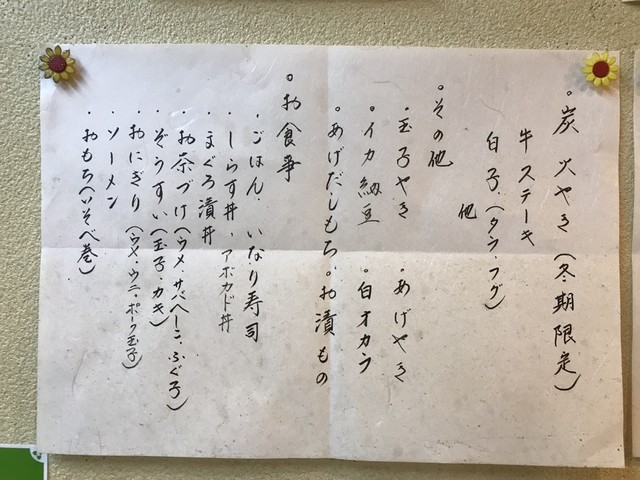 。炭火やき(冬期限定)
牛ステーキ
白子(タラ・フグ)
他
。その他
・玉子やき ・あげやき
・イカ納豆 。白オカラ
・あげだしもち。お漬もの
。お食事
・ごはん・いなり寿司
・しらす丼・アボカド丼
・まぐろ漬丼
・お茶づけ(ウメ・サバへしこ・ふぐ子)
・ぞうすい(玉子・カキ)
・おにぎり(ウメ・ウニ・ポーク玉子)
・ソーメン
・おもち(いそべ巻)